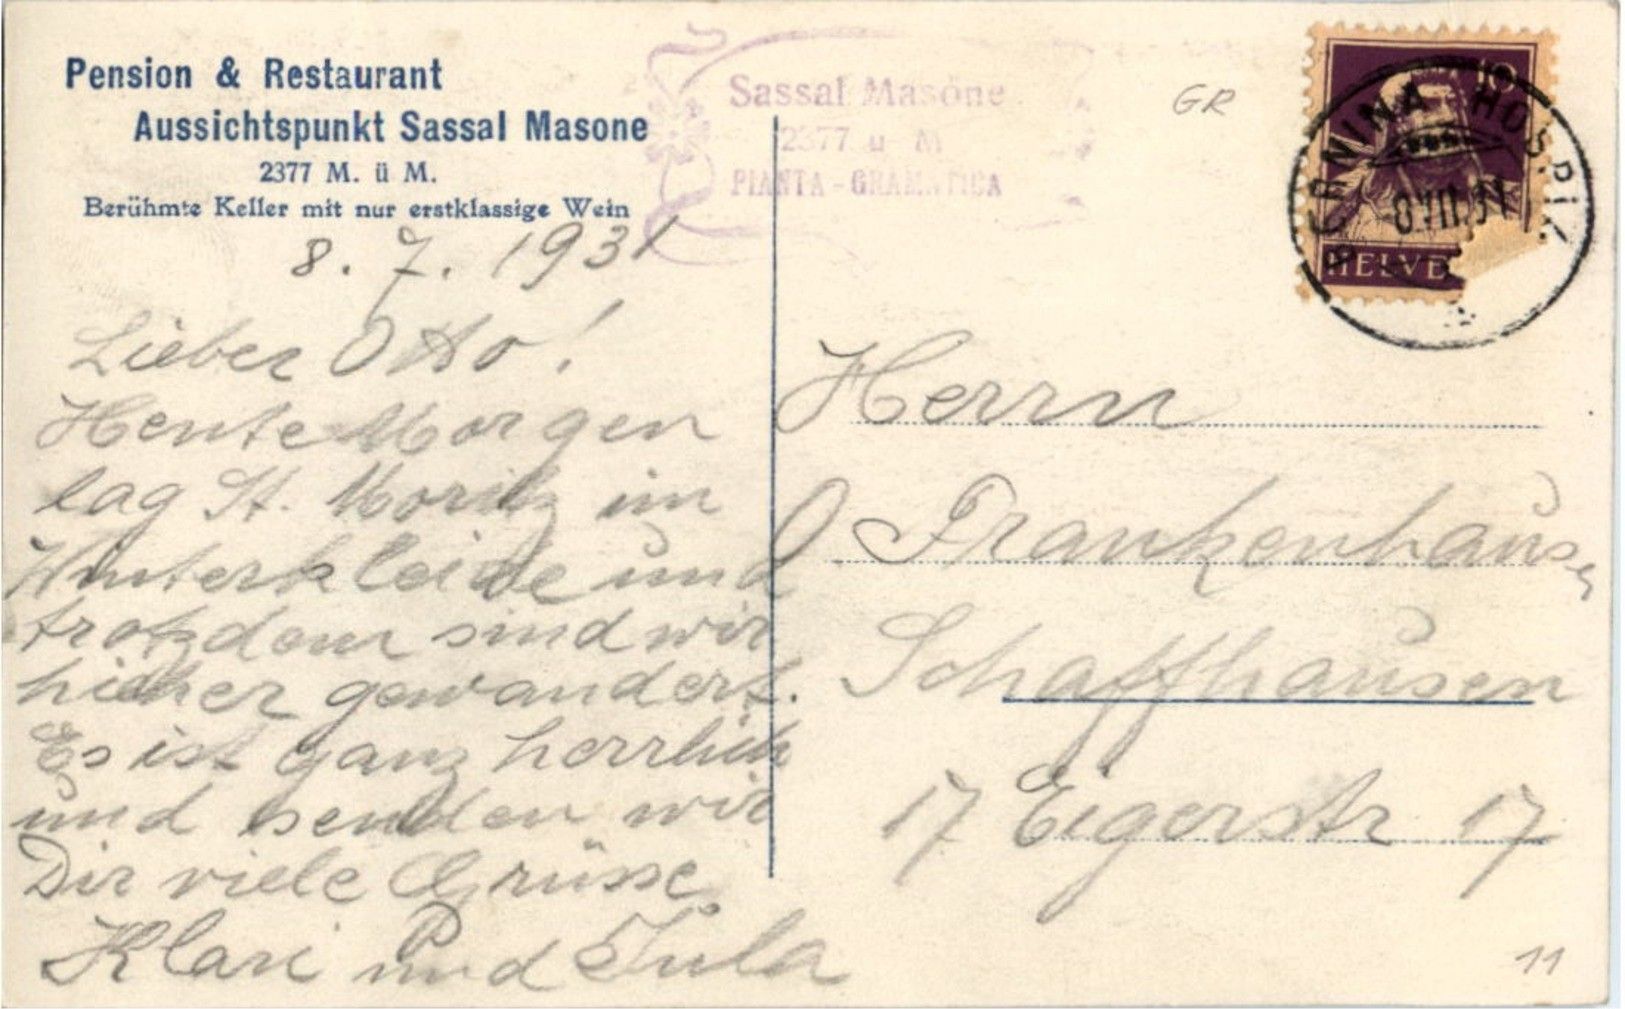 Pension & Restaurant
Aussichtspunkt Sassal Masone
2377 M. ü M.
Berühmte Keller mit nur erstklassige Wein
Sassal Masone
2377 ü M
PIANTA - GRAMATICA
GR
10
HELVE
BERNINA HOSPIZ
8.VII.31
8. 7. 1931
Lieber Otto!
Heute Morgen
lag St. Moritz im
Winterkleide und
trotzdem sind wir
hieher gewandert.
Es ist ganz herrlich
und senden wir
Dir viele Grüsse
Klari und Jula
Herrn
O Frankenhaus
Schaffhausen
17 Eigerstr 17
11